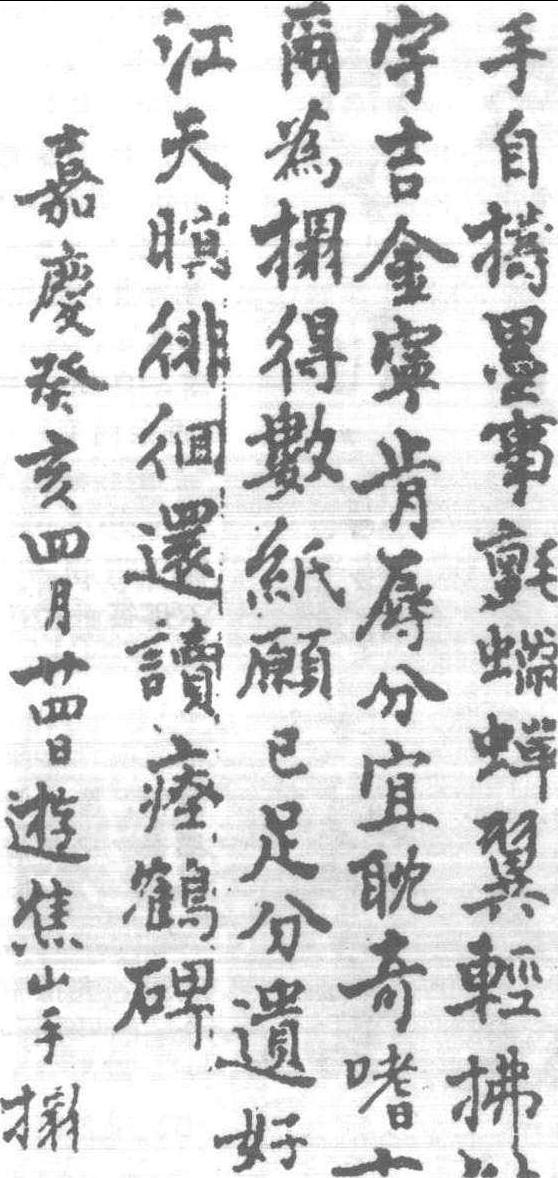 手自擣墨事氈蠟蟬翼輕拂
字吉金寧肯辱分宜耽奇嗜
爾為搨得數紙願已足分遺好
江天暝徘徊還讀瘞鶴碑
嘉慶癸亥四月廿四日遊焦山手